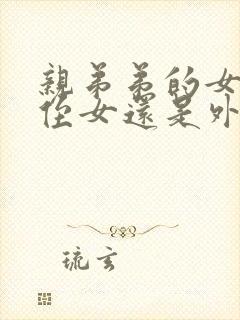 親弟弟的女
侄女還是外
琉玄